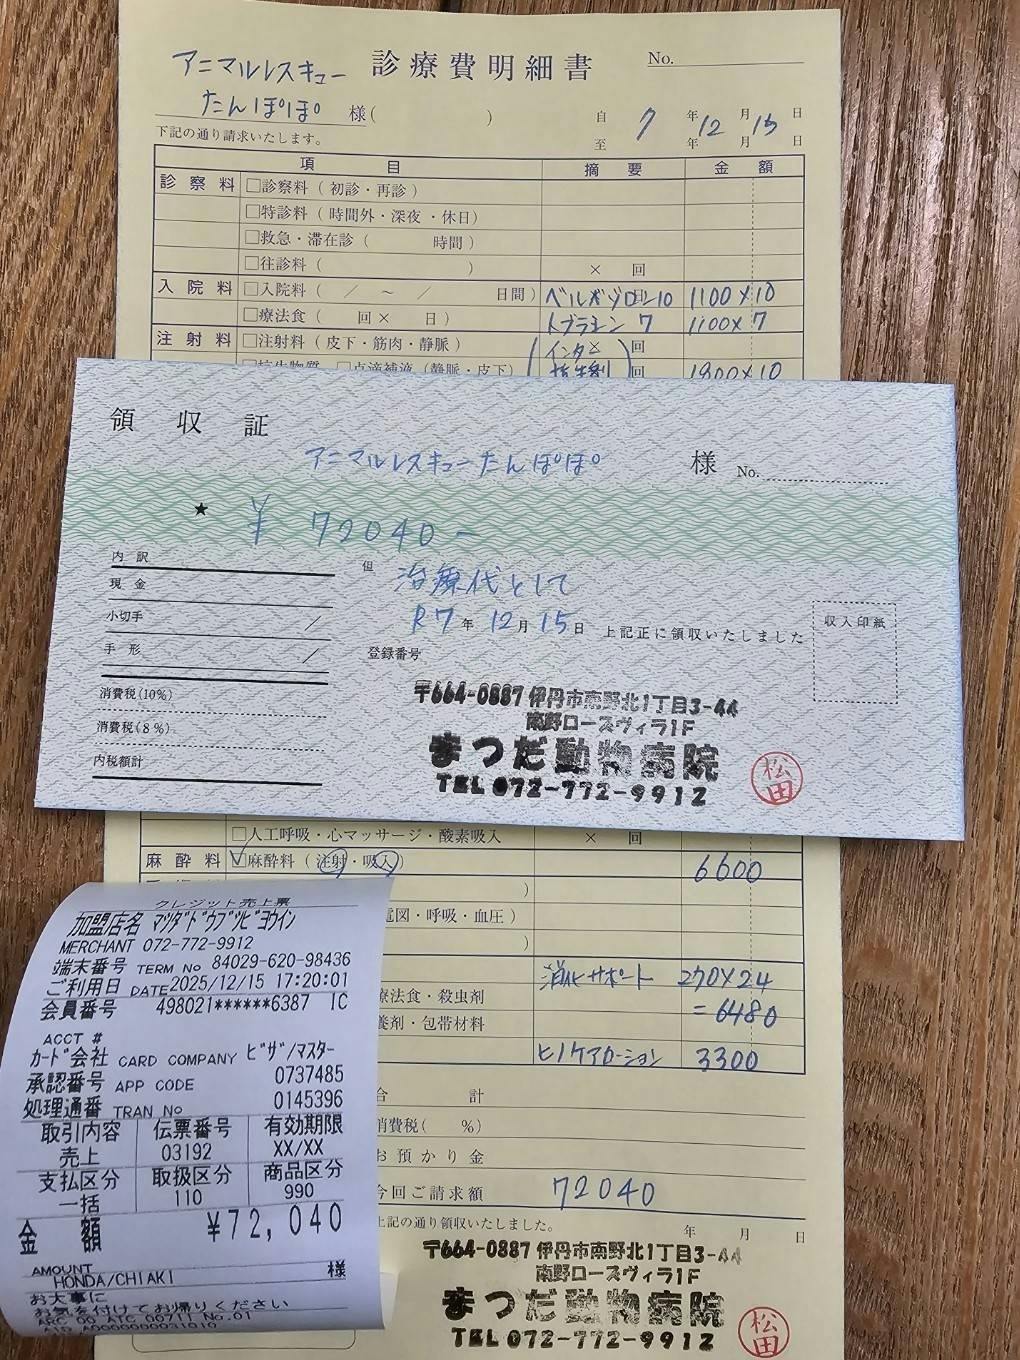 診療費明細書
No.
アニマルレスキュー
たんぽぽ 様( )
下記の通り請求いたします。
自 7 年 12 月 15 日
至 年 月 日
項 目 摘 要 金 額
診察料 □診察料(初診・再診)
□特診料(時間外・深夜・休日)
□救急・滞在診( 時間)
□往診料( ) × 回
入院料 □入院料( / ~ / 日間) ベルボゾロン10 1100×10
□療法食( 回× 日) トブラシン 7 1100×7
注射料 □注射料(皮下・筋肉・静脈) (インター 回
□抗生物質 □点滴補液(静脈・皮下) 抗生剤) 回 1800×10
領収証
アニマルレスキューたんぽぽ 様 No.
★ ¥72040-
内訳
現金
小切手 /
手形 /
消費税(10%)
消費税(8%)
内税額計
但 治療代として
R7年12月15日 上記正に領収いたしました
登録番号
収入印紙
〒664-0887 伊丹市南野北1丁目3-44
南野ローズヴィラ1F
まつだ動物病院
TEL 072-772-9912
松田
□人工呼吸・心マッサージ・酸素吸入 × 回
麻酔料 ☑麻酔料(注射・吸入) 6600
)
電図・呼吸・血圧)
)
消化サポート 270×24
療法食・殺虫剤 =6480
養剤・包帯材料
ヒノケアローション 3300
合 計
消費税( %)
お預かり金
今回ご請求額 72040
上記の通り領収いたしました。
年 月 日
〒664-0887 伊丹市南野北1丁目3-44
南野ローズヴィラ1F
まつだ動物病院
TEL 072-772-9912
松田
クレジット売上票
加盟店名 マツダドウブツビヨウイン
MERCHANT 072-772-9912
端末番号 TERM No 84029-620-98436
ご利用日 DATE 2025/12/15 17:20:01
会員番号 498021******6387 IC
ACCT #
カード会社 CARD COMPANY ビザ/マスター
承認番号 APP CODE 0737485
処理通番 TRAN No 0145396
取引内容 伝票番号 有効期限
売上 03192 XX/XX
支払区分 取扱区分 商品区分
一括 110 990
金額 ¥72,040
AMOUNT
HONDA/CHIAKI 様
お大事に
お気を付けてお帰りください
ARC 00 ATC 00711 No.01
AID A0000000031010